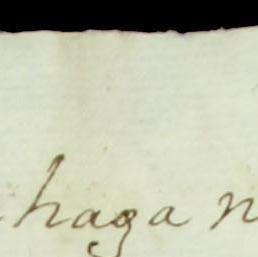 haga n